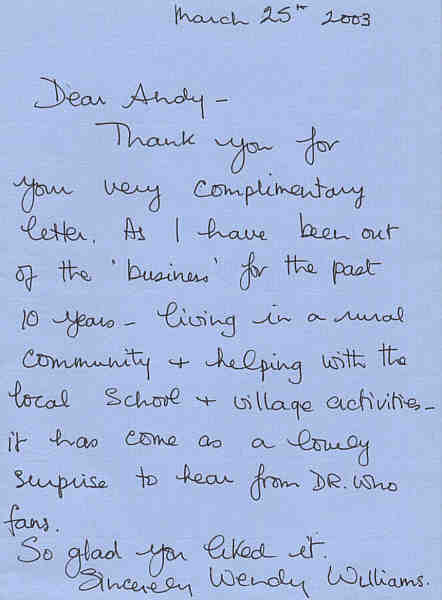 March 25th 2003
Dear Andy -
Thank you for
your very complimentary
letter. As I have been out
of the 'business' for the past
10 years - living in a rural
community + helping with the
local School + village activities -
it has come as a lovely
surprise to hear from DR. Who
fans.
So glad you liked it.
Sincerely Wendy Williams.